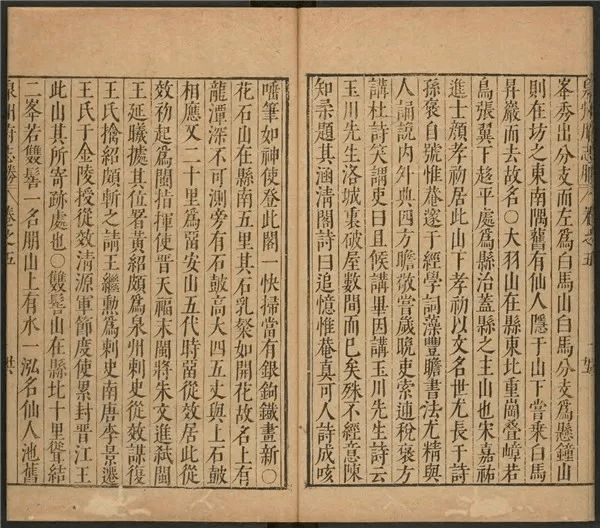 峯秀出分支而左爲白馬山白馬分支爲懸鐘山
則在坊之東南隅舊有仙人隱于山下嘗乘白馬
昇巖而去故名○大羽山在縣東北重崗疊嶂若
鳥張翼下趍平處爲縣治葢縣之主山也宋嘉祐
進士顔孝初居此山下孝初以文名世尤長于詩
孫褒自號惟菴邃于經學詞藻豐贍書法尤精與
人誦說內外典四方瞻敬嘗歲晩吏索逋稅褒方
講杜詩笑謂吏曰且候講畢因講玉川先生詩云
玉川先生洛城裏破屋數間而已矣殊不經意陳
知柔題其涵清閣詩曰追憶惟菴真可人詩成咳
唾筆如神使登此閣一快掃當有銀鉤鐵畫新○
花石山在縣南五里其石乳粲如開花故名上有
龍潭深不可測旁有石鼓高大四五丈與上石皷
相應又二十里爲畱安山五代時畱從效居此從
效初起爲閩指揮使晉天福末閩將朱文進弑閩
王延曦據其位署黃紹頗爲泉州刺史從效謀復
王氏擒紹頗斬之請王繼勲爲刺史南唐李景遷
王氏于金陵授從效清源軍節度使累封晉江王
此山其所寄跡處也○雙髻山在縣北十里聳結
二峯若雙髻一名朋山上有水一泓名仙人池舊
泉州府志勝 卷之五